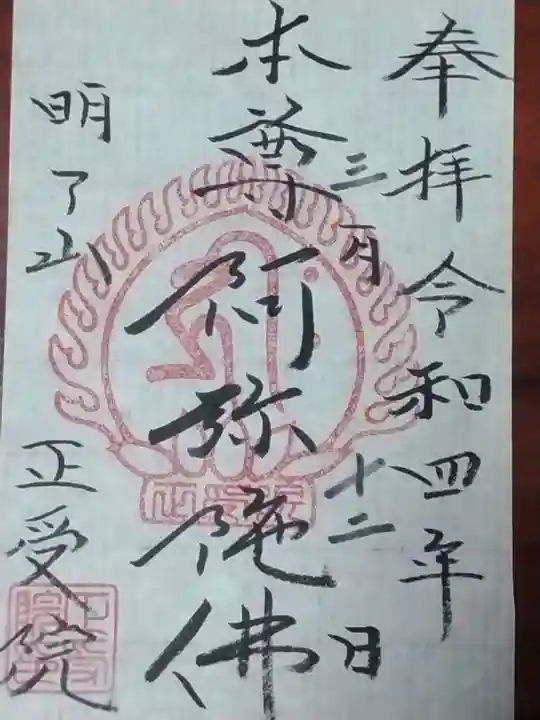 奉拝 令和四年
三月十二日
本尊 阿弥陀佛
明了山 正受院